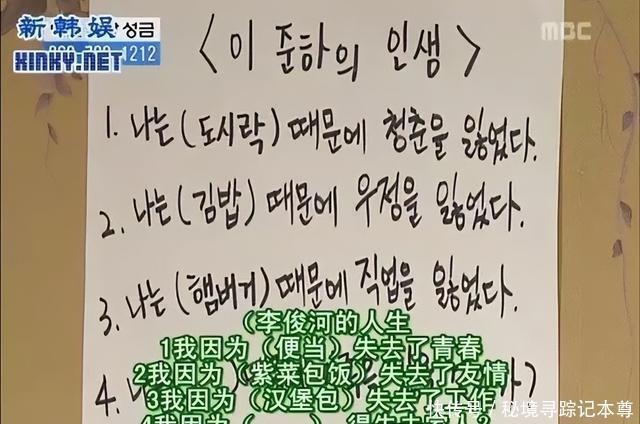 新韩娱 성금
1212 MBC
XINKY.NET
<이 준하의 인생>
1. 나는 (도시락) 때문에 청춘을 잃었다.
2. 나는 (김밥) 때문에 우정을 잃었다.
3. 나는 (햄버거) 때문에 직업을 잃었다.
4.
(李俊河的人生
1我因为（便当）失去了青春
2我因为（紫菜包饭）失去了友情
3我因为（汉堡包）失去了工作
快传号/秘境寻踪记本尊